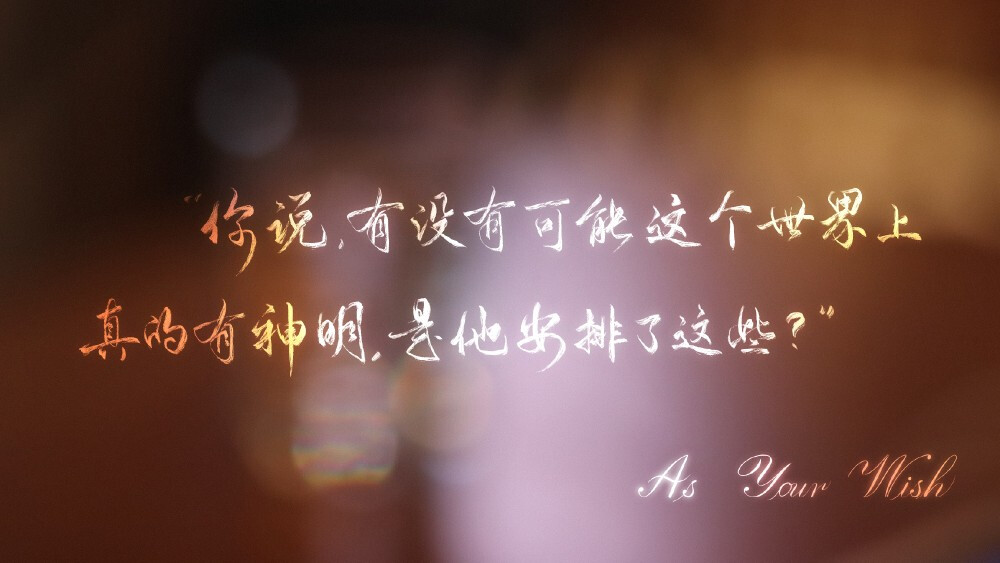 “你说，有没有可能这个世界上
真的有神明，是他安排了这些？”
As Your Wish